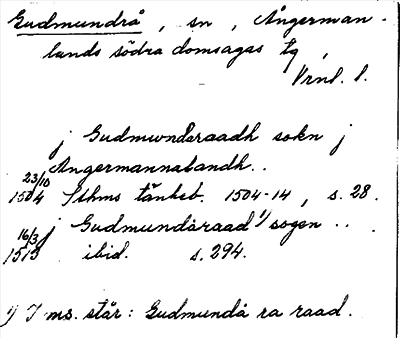 Gudmundrå, sn, Ångerman-
lands södra domsagas tg,
Vrnl. l.
j Gudmundsraadh sokn j
Angermannalandh..
23/10
1504 Sthms tänkeb. 1504-14, s. 28.
j Gudmundåraad 1) sogen ..
16/3
1513 ibid. s. 294.
1) I ms. står: Gudmundå ra raad.